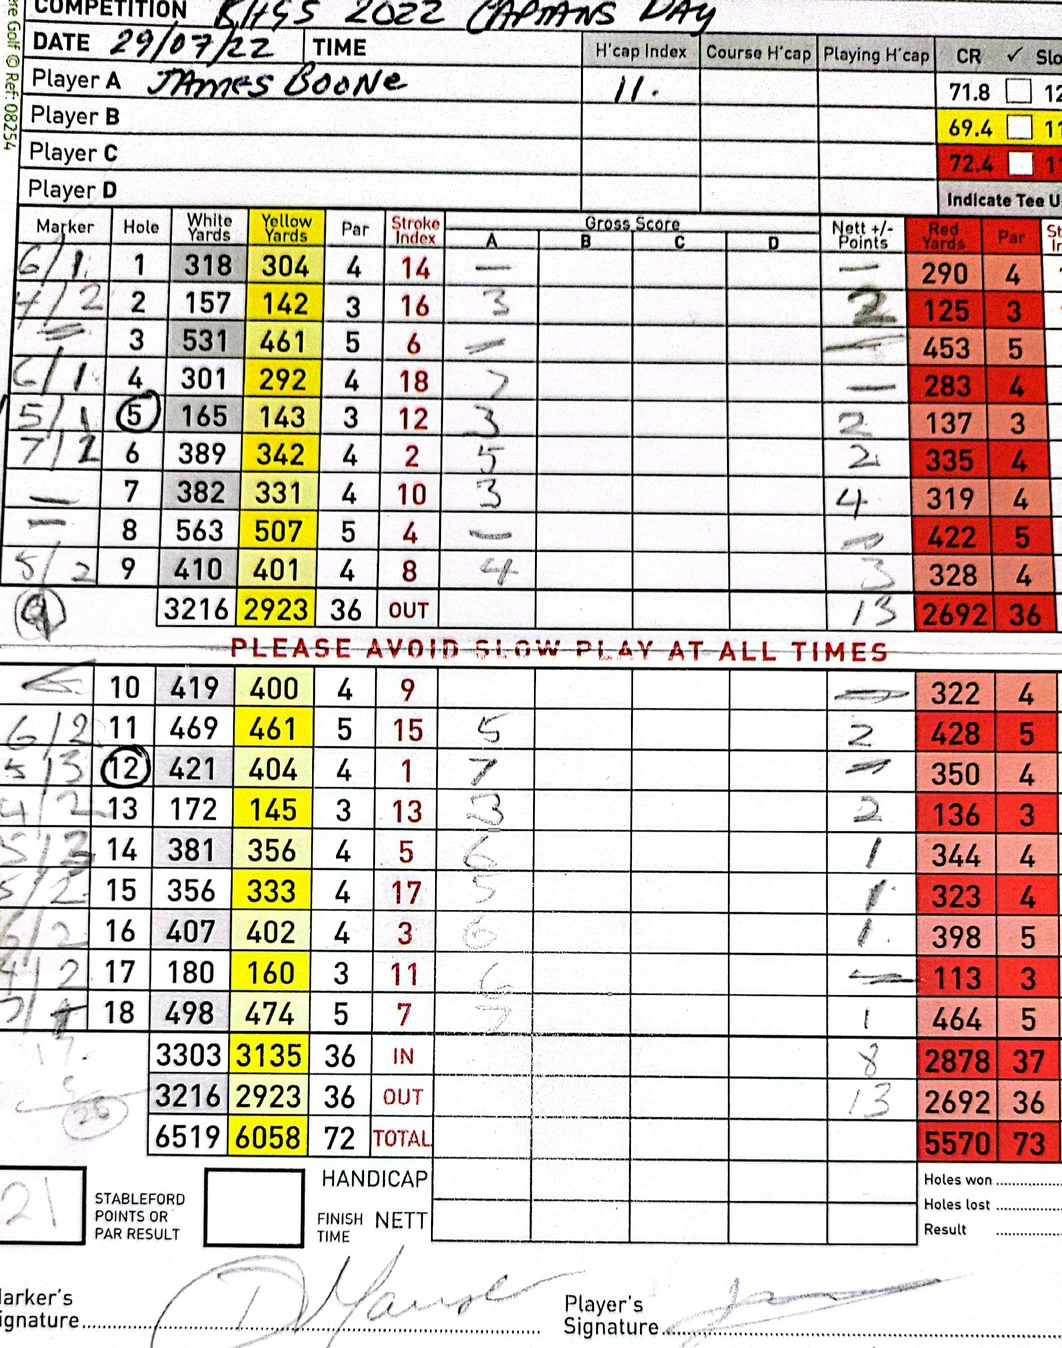 COMPETITION KHGS 2022 CAPTANS DAY
DATE 29/07/22 TIME H'cap Index Course H'cap Playing H'cap CR ✓ Slo
Player A JAMES BOONE 11. 71.8 12
Player B 69.4 11
Player C 72.4 1
Player D Indicate Tee U
re Golf © Ref: 08254
Marker Hole White Yards Yellow Yards Par Stroke Index Gross Score A B C D Nett +/- Points Red Yards Par St
6/1. 1 318 304 4 14 — — 290 4
4/2 2 157 142 3 16 3 2 125 3
— 3 531 461 5 6 — — 453 5
6/1. 4 301 292 4 18 7 — 283 4
5/1 5 165 143 3 12 3 2 137 3
7/2 6 389 342 4 2 5 2 335 4
— 7 382 331 4 10 3 4 319 4
— 8 563 507 5 4 — — 422 5
5/2 9 410 401 4 8 4 3 328 4
9 3216 2923 36 OUT 13 2692 36
PLEASE AVOID SLOW PLAY AT ALL TIMES
10 419 400 4 9 — 322 4
6/2 11 469 461 5 15 5 2 428 5
5/3 12 421 404 4 1 7 — 350 4
4/2 13 172 145 3 13 3 2 136 3
5/3 14 381 356 4 5 6 1 344 4
5/2 15 356 333 4 17 5 1 323 4
6/2 16 407 402 4 3 6 1. 398 5
4/2 17 180 160 3 11 6 — 113 3
18 498 474 5 7 7 1 464 5
17. 3303 3135 36 IN 8 2878 37
26 3216 2923 36 OUT 13 2692 36
6519 6058 72 TOTAL 5570 73
21 STABLEFORD POINTS OR PAR RESULT HANDICAP Holes won
FINISH TIME NETT Holes lost
Result
arker's ignature
Player's Signature